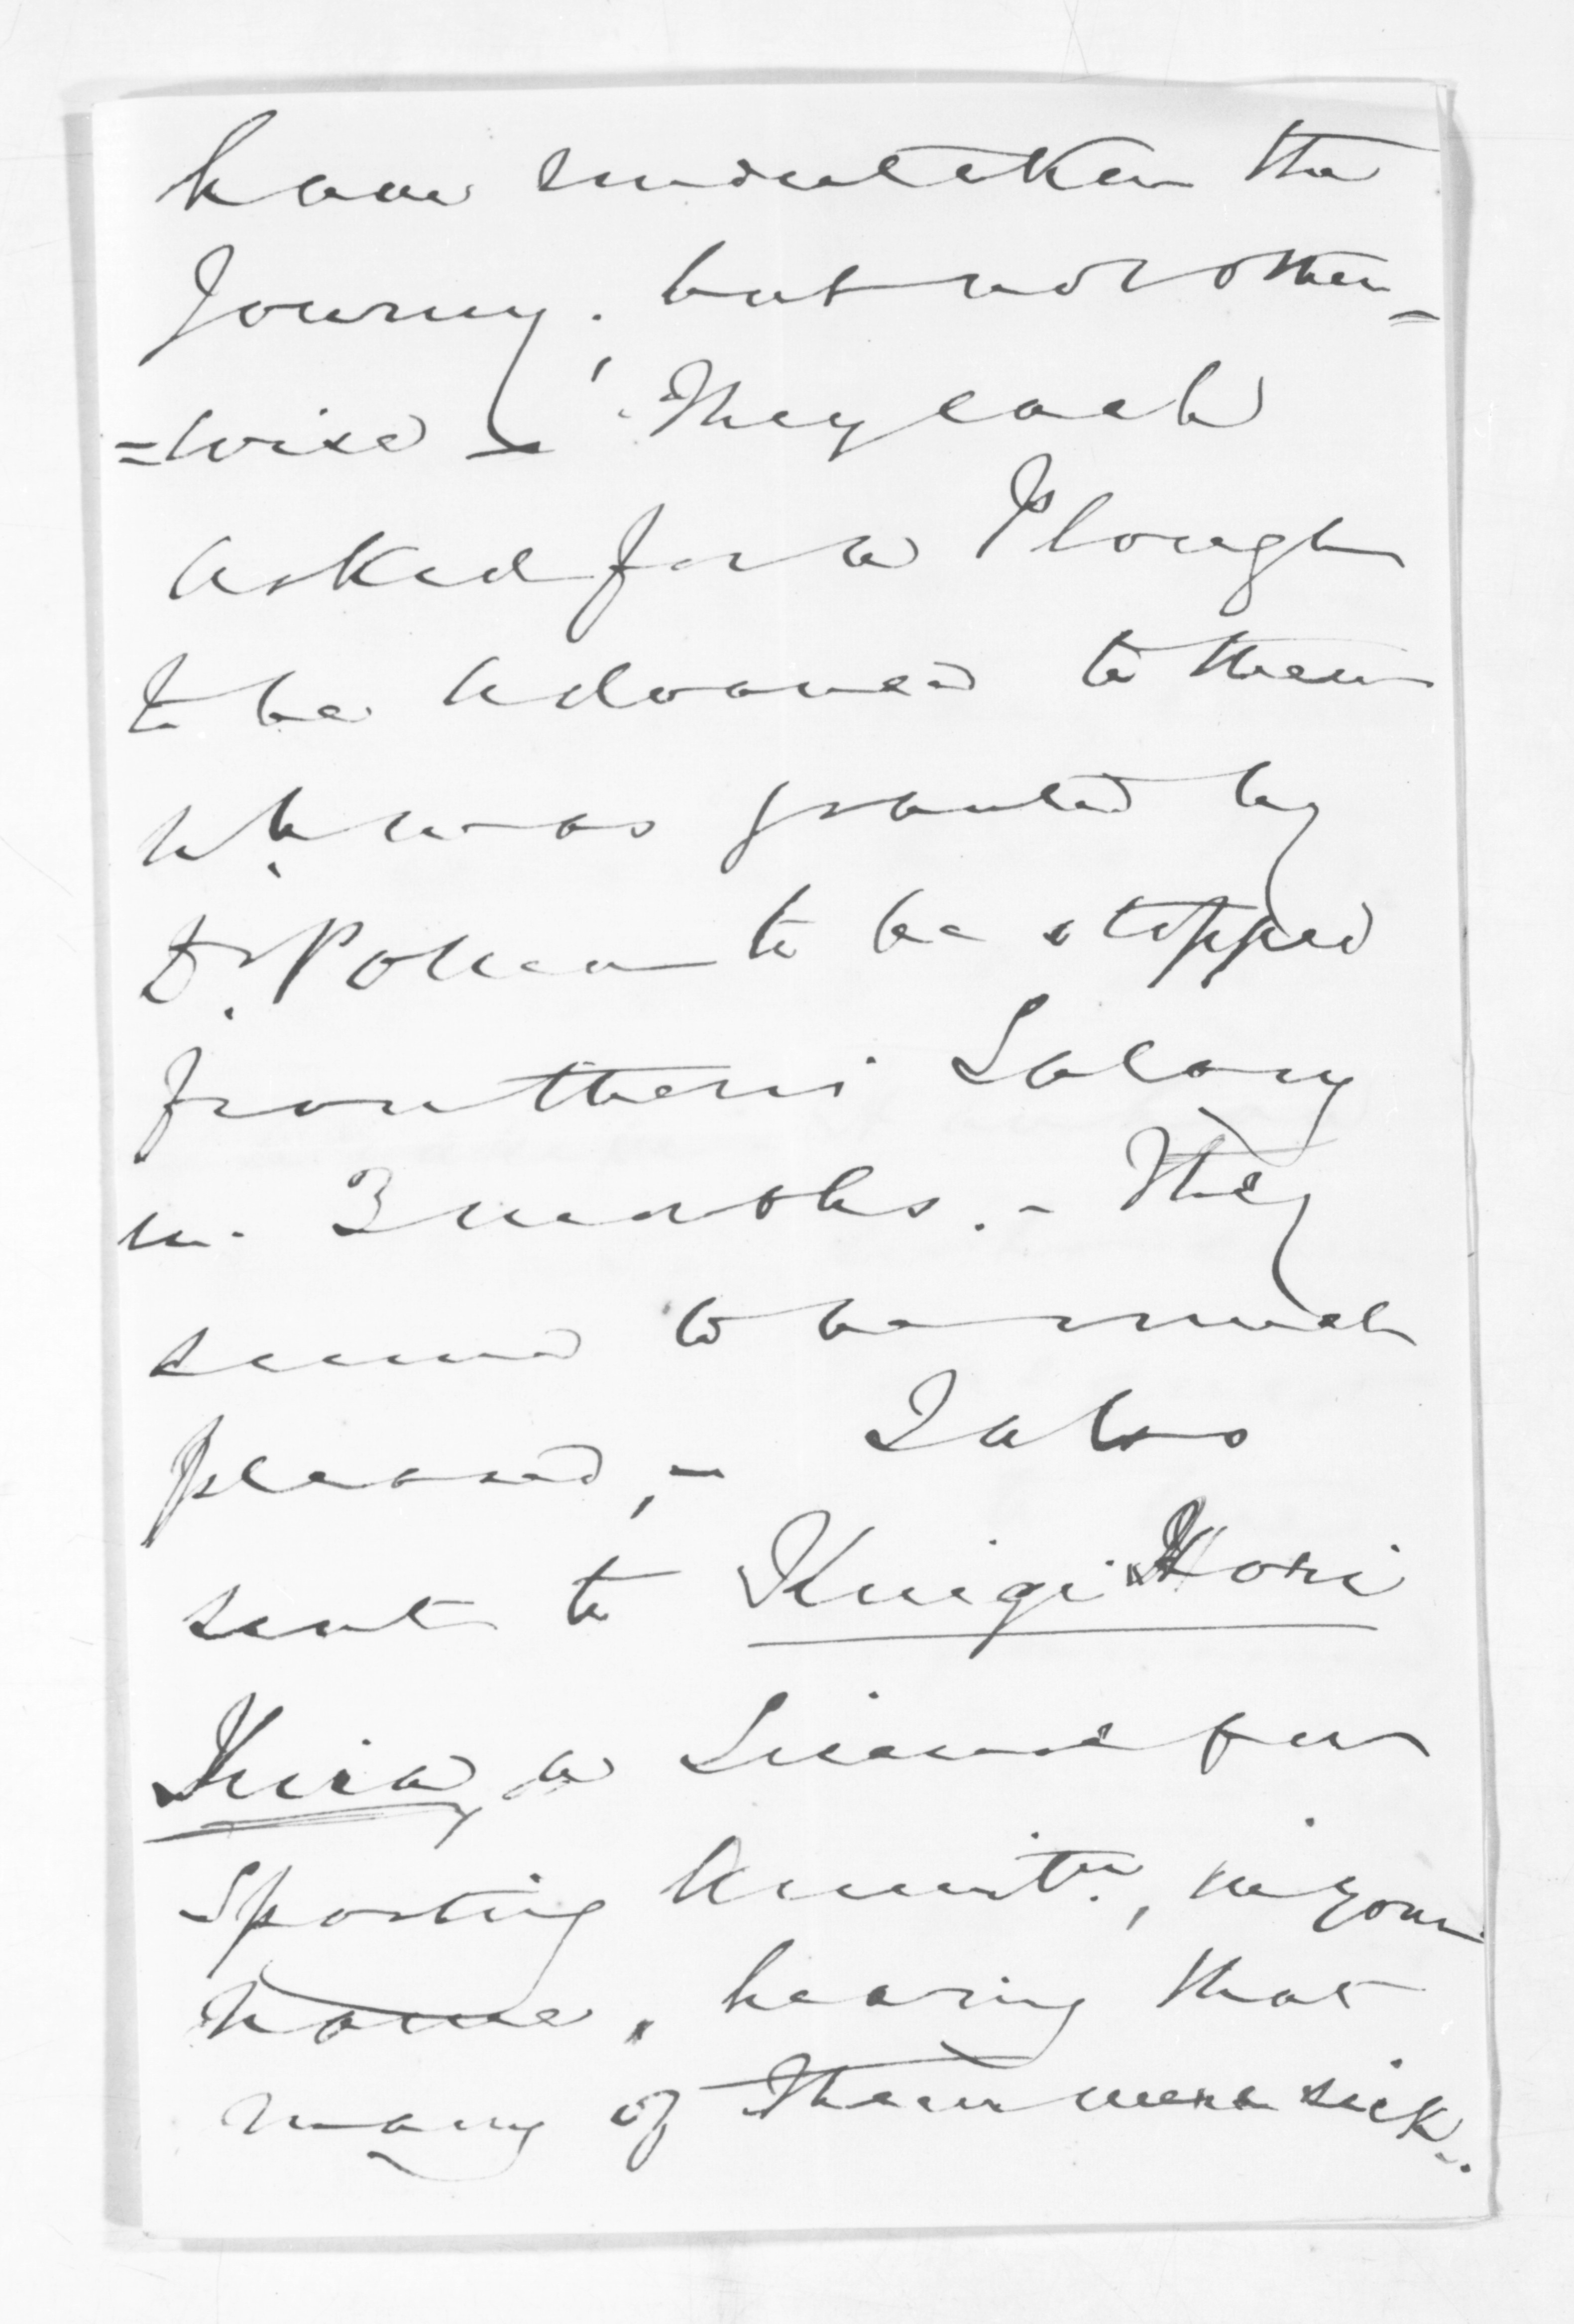 have undertaken the
Journey; but not other=
=wise. They each
asked for a Plough
to be advanced to them
wh. was granted by
Dr. Pollen to be stopped
from their Salary
in 3 months. - They
seemed to be much
pleased, - I also
sent to Kuigi Hori
a License for
Sporting Ammitn., in your
name, hearing that
many of them were sick.